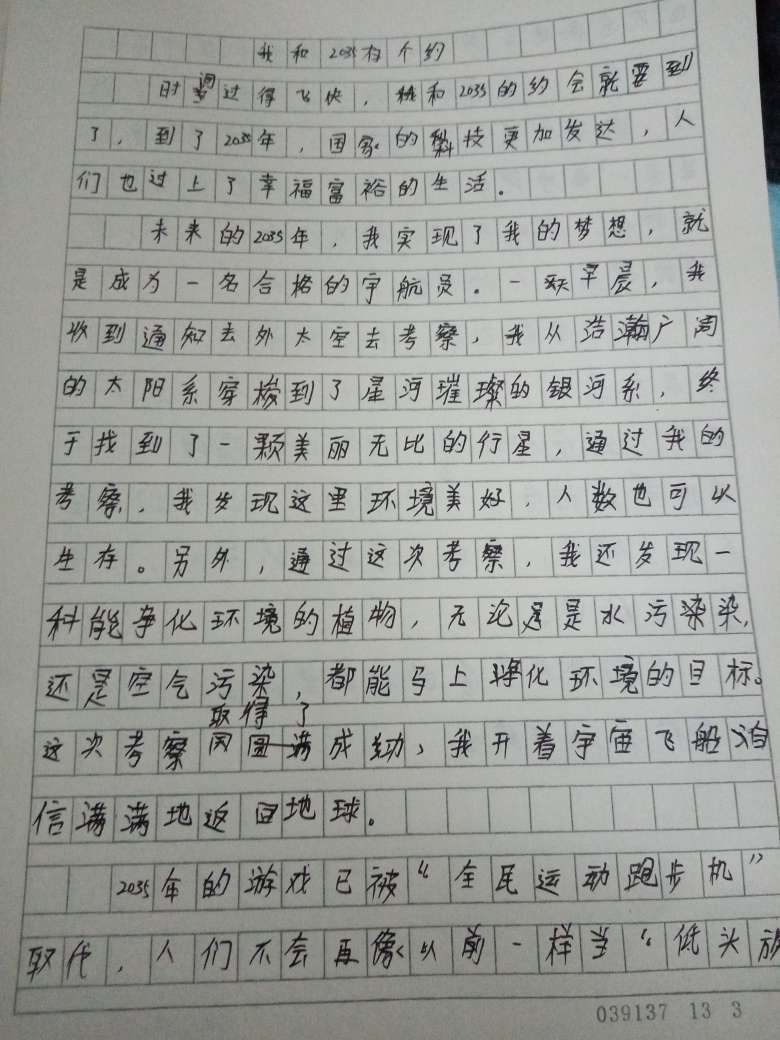 我和2035有个约
时间过得飞快，我和2035的约会就要到
了，到了2035年，国家的科技更加发达，人
们也过上了幸福富裕的生活。
未来的2035年，我实现了我的梦想，就
是成为一名合格的宇航员。一天早晨，我
收到通知去外太空去考察，我从浩瀚广阔
的太阳系穿梭到了星河璀璨的银河系，终
于找到了一颗美丽无比的行星，通过我的
考察，我发现这里环境美好，人数也可以
生存。另外，通过这次考察，我还发现一
科能净化环境的植物，无论是是水污染染，
还是空气污染，都能马上净化环境的目标。
取得了
这次考察圆满成功，我开着宇宙飞船自
信满满地返回地球。
2035年的游戏已被“全民运动跑步机”
取代，人们不会再像以前一样当“低头族
039137 13 3